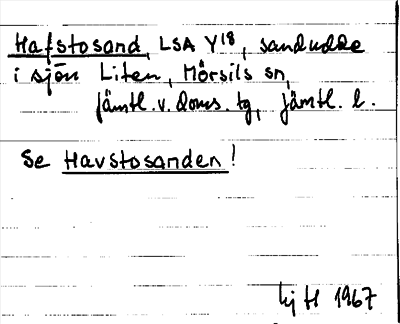 Hafstosand, LSA Y18, sandudde
i sjön Liten, Mörsils sn,
Jämtl. v. doms. tg, Jämtl. l.
Se Havstosanden!
1967